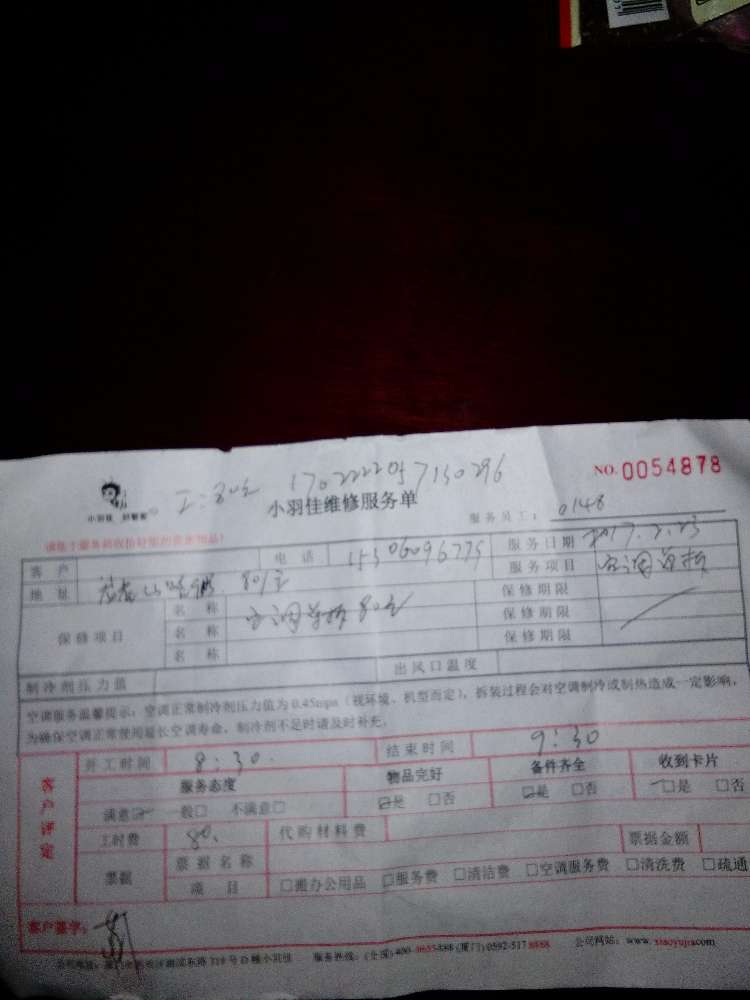 NO.0054878
工:80元 1702222057130296
小羽佳 好管家
小羽佳维修服务单
服务员工: 0148
客户 电话 15306096775 服务日期 2017.2.23
地址 服务项目 空调单拆
保修项目 名称 空调单拆80元 保修期限
名称 保修期限
名称 保修期限
制冷剂压力值 出风口温度
空调服务温馨提示:空调正常制冷剂压力值为0.45mpa(视环境、机型而定),拆装过程会对空调制冷或制热造成一定影响,
为确保空调正常使用延长空调寿命,制冷剂不足时请及时补充。
客户评定
开工时间 8:30. 结束时间 9:30
服务态度 物品完好 备件齐全 收到卡片
满意☑ 一般□ 不满意□ ☑是 □否 ☑是 □否 ☑是 □否
工时费 80. 代购材料费 票据金额
票据 票据名称
项目 □搬力公用品 □服务费 □清洁费 □空调服务费 □清洗费 □疏通
客户签字:
服务热线:(全国)400-8655-888(厦门)0592-5178888 公司网站:www.xiaoyujia.com